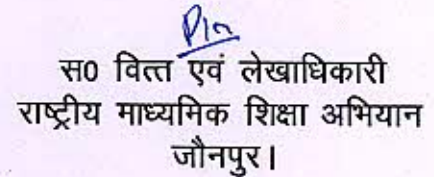 स0 वित्त एवं लेखाधिकारी
राष्ट्रीय माध्यमिक शिक्षा अभियान
जौनपुर।